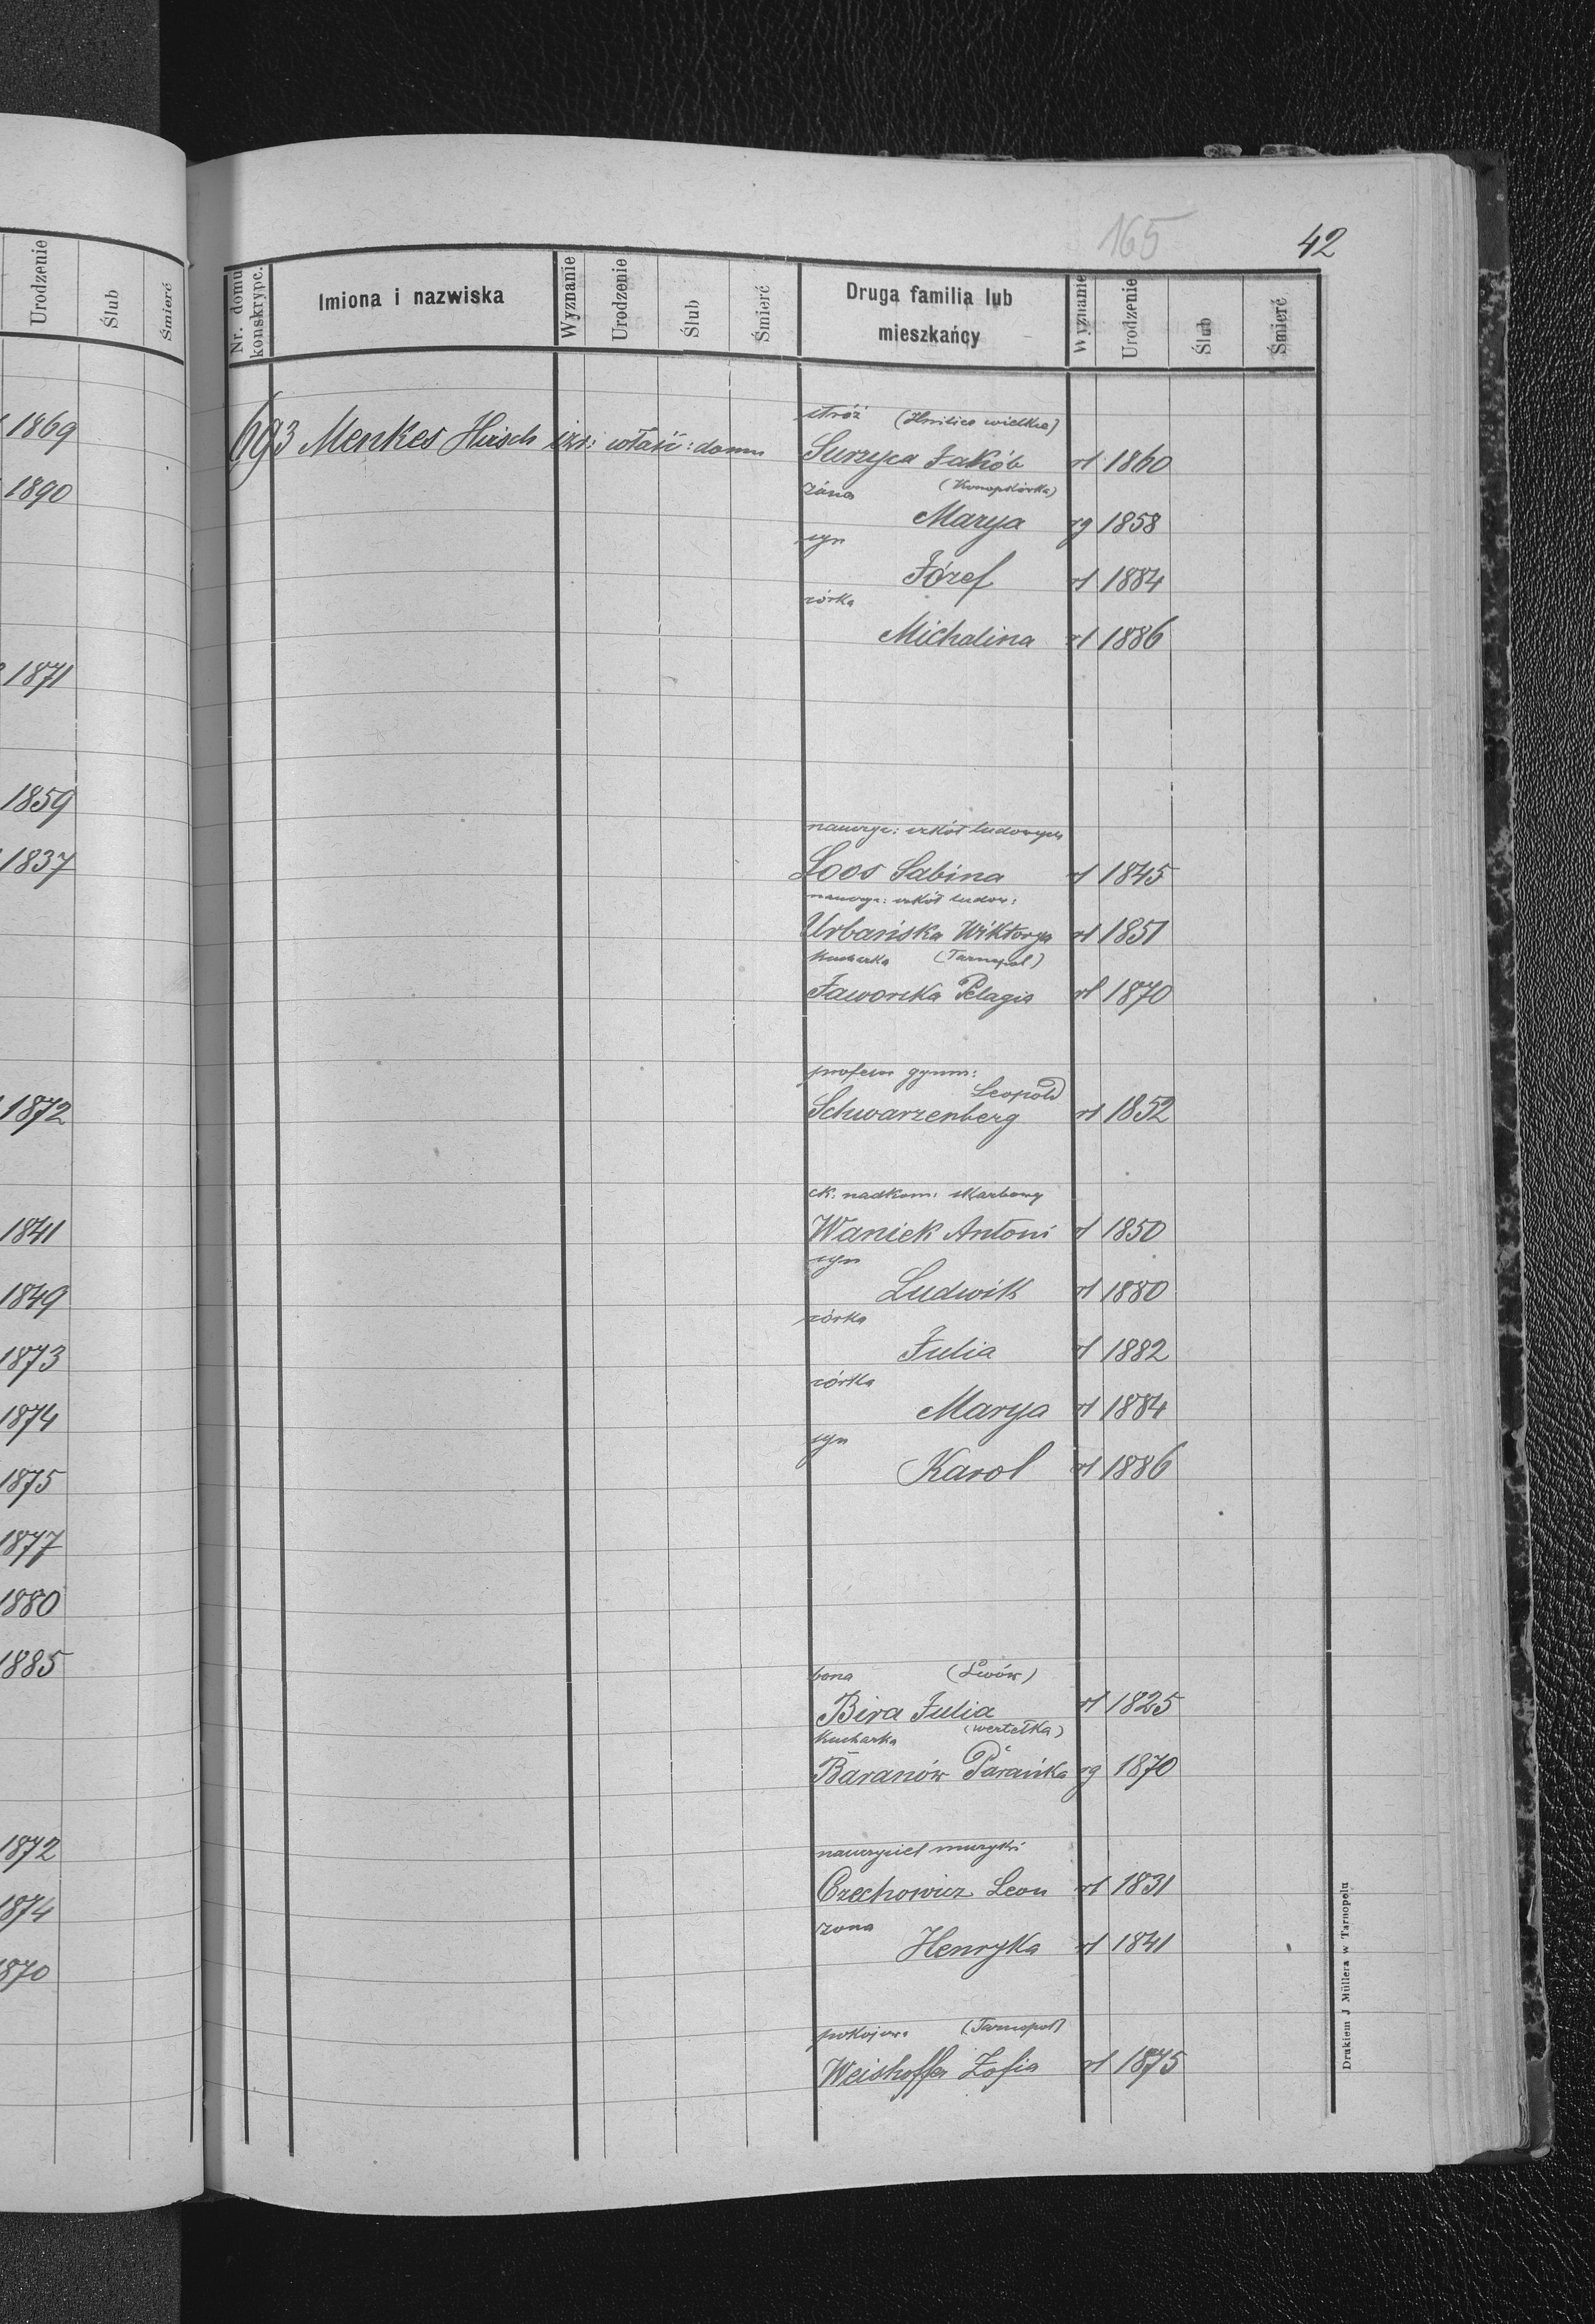 Urodzenie
Ślub
Śmierć
1869
1890
1871
1859
1837
1872
1841
1849
1873
1874
1875
1877
1880
1885
1872
1874
1870
165
42
Nr. domu konskrypc.
Imiona i nazwiska
Wyznanie
Urodzenie
Ślub
Śmierć
Druga familia lub mieszkańcy
Wyznanie
Urodzenie
Ślub
Śmierć
stróż (Hnilice wielkie)
693 Menkes Hirsch izr: właść: domu Surzyca Jakób rł 1860
żona (Konopkówka)
Marya rg 1858
syn
Józef rł 1884
córka
Michalina rł 1886
nauczyc: szkół ludowych
Loos Sabina rł 1845
nauczyc: szkół ludow:
Urbańska Wiktorya rł 1851
kucharka (Tarnopol)
Jaworska Pelagia rł 1870
profesor gymn:
Leopold
Schwarzenberg rł 1852
ck. nadkom: skarbowy
Waniek Antoni rł 1850
syn
Ludwik rł 1880
córka
Julia rł 1882
córka
Marya rł 1884
syn
Karol rł 1886
bona (Lwów)
Bira Julia rł 1825
kucharka (wertełka)
Baranów Parańka rg 1870
nauczyciel muzyki
Czechowicz Leon rł 1831
żona
Henryka rł 1841
pokojow: (Tarnopol)
Weishoffer Zofia rł 1875
Drukiem J Müllera w Tarnopolu